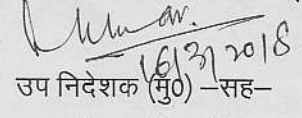 16/3/2018
उप निदेशक (मु0) –सह–